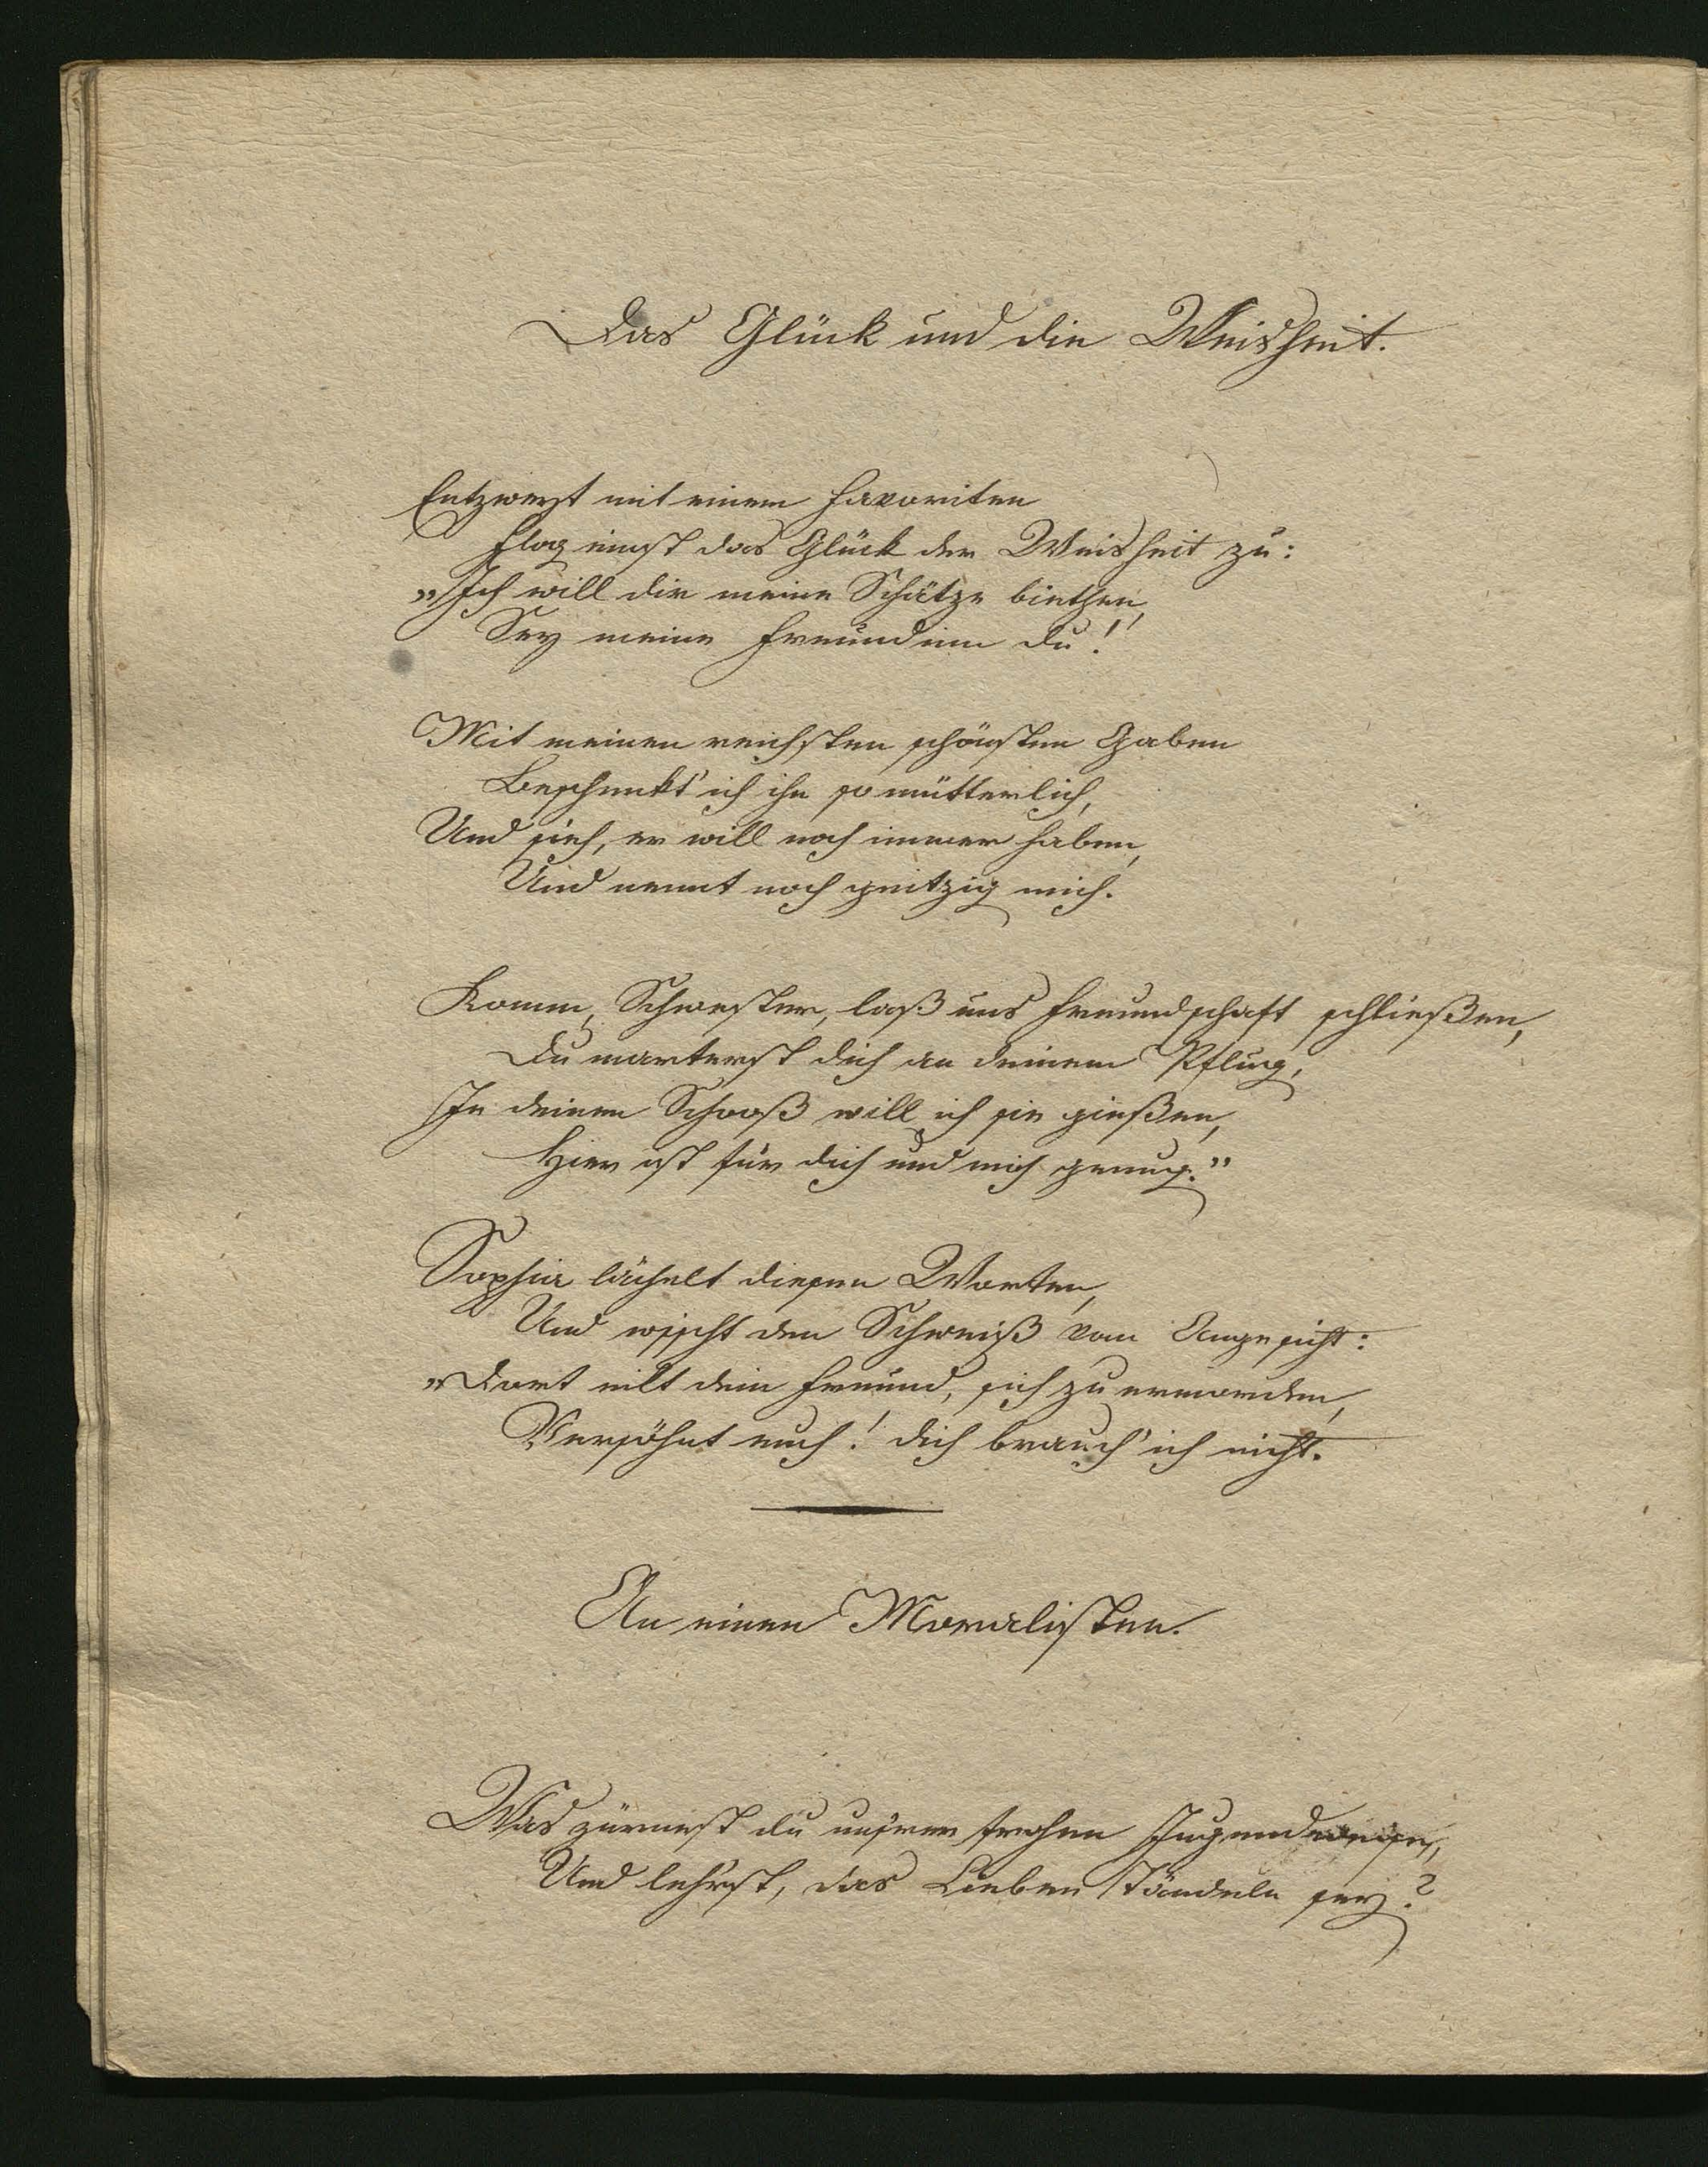 Das Glück und die Weisheit.
Entzweyt mit einem Favoriten
Flog einst das Glück der Weisheit zu:
„Ich will dir meine Schätze biethen,
Sey meine Freundinn du!
Mit meinen reichsten schönsten Gaben
Beschenkt' ich ihn so mütterlich,
Und sieh, er will noch immer haben,
Und nennt noch geitzig mich.
Komm, Schwester, laß uns Freundschaft schließen,
Du marterst dich an deinem Pflug,
In deinen Schooß will ich sie gießen,
Hier ist für dich und mich genug.”
Sophia lächelt diesen Worten,
Und wischt den Schweiß vom Angesicht:
„Dort eilt dein Freund, sich zu ermorden,
Versöhnt euch! dich brauch' ich nicht.
An einen Moralisten.
Was zürnest du unsrer frohen Jugendweise,
Und lehr'st, das Lieben Tändeln sey?